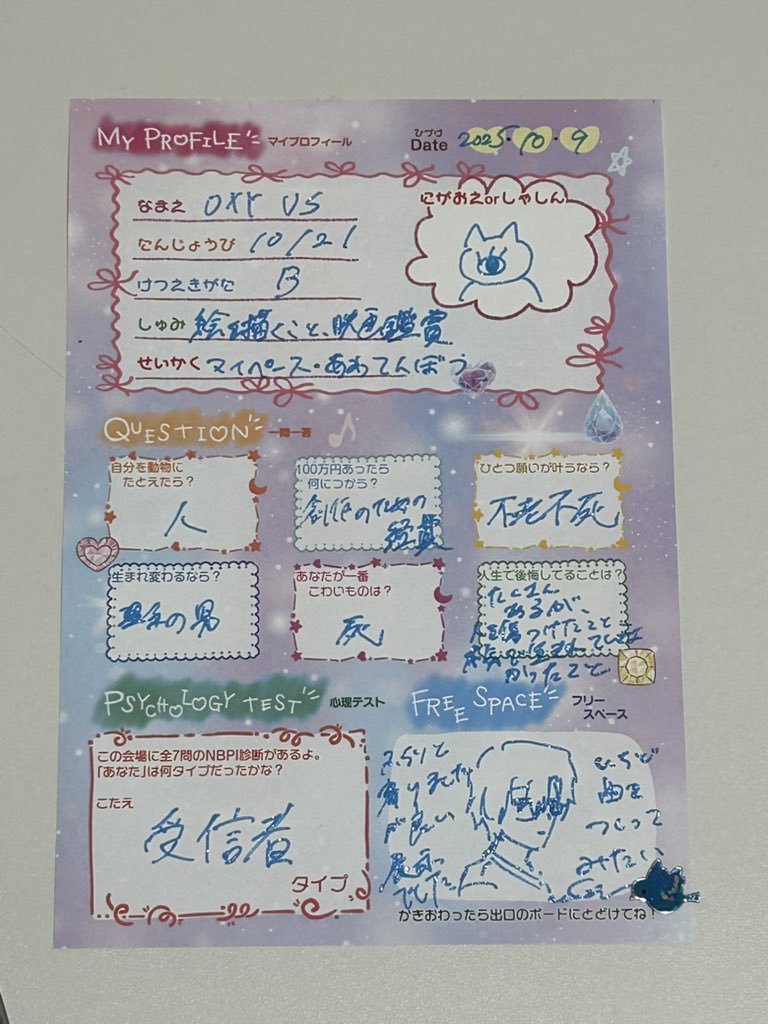 MY PROFILE マイプロフィール
ひづけ
Date 2025・10・9
なまえ OXY US
たんじょうび 10/21
けつえきがた B
しゅみ 絵を描くこと、映画鑑賞
せいかく マイペース・あわてんぼう
にがおえorしゃしん
QUESTION 一問一答
自分を動物に
たとえたら?
人
100万円あったら
何につかう?
創作のための
経費
ひとつ願いが叶うなら?
不老不死
生まれ変わるなら?
の男
あなたが一番
こわいものは?
死
人生で後悔してることは?
たくさん
あるが、
人を傷つけたこと
かったこと
PSYCHOLOGY TEST 心理テスト
この会場に全7問のNBPI診断があるよ。
「あなた」は何タイプだったかな?
こたえ
受信者
タイプ
FREE SPACE フリー
スペース
ふらりと
寄りました
が良い
展示
でした
曲を
つくって
みたい
かきおわったら出口のボードにとどけてね!